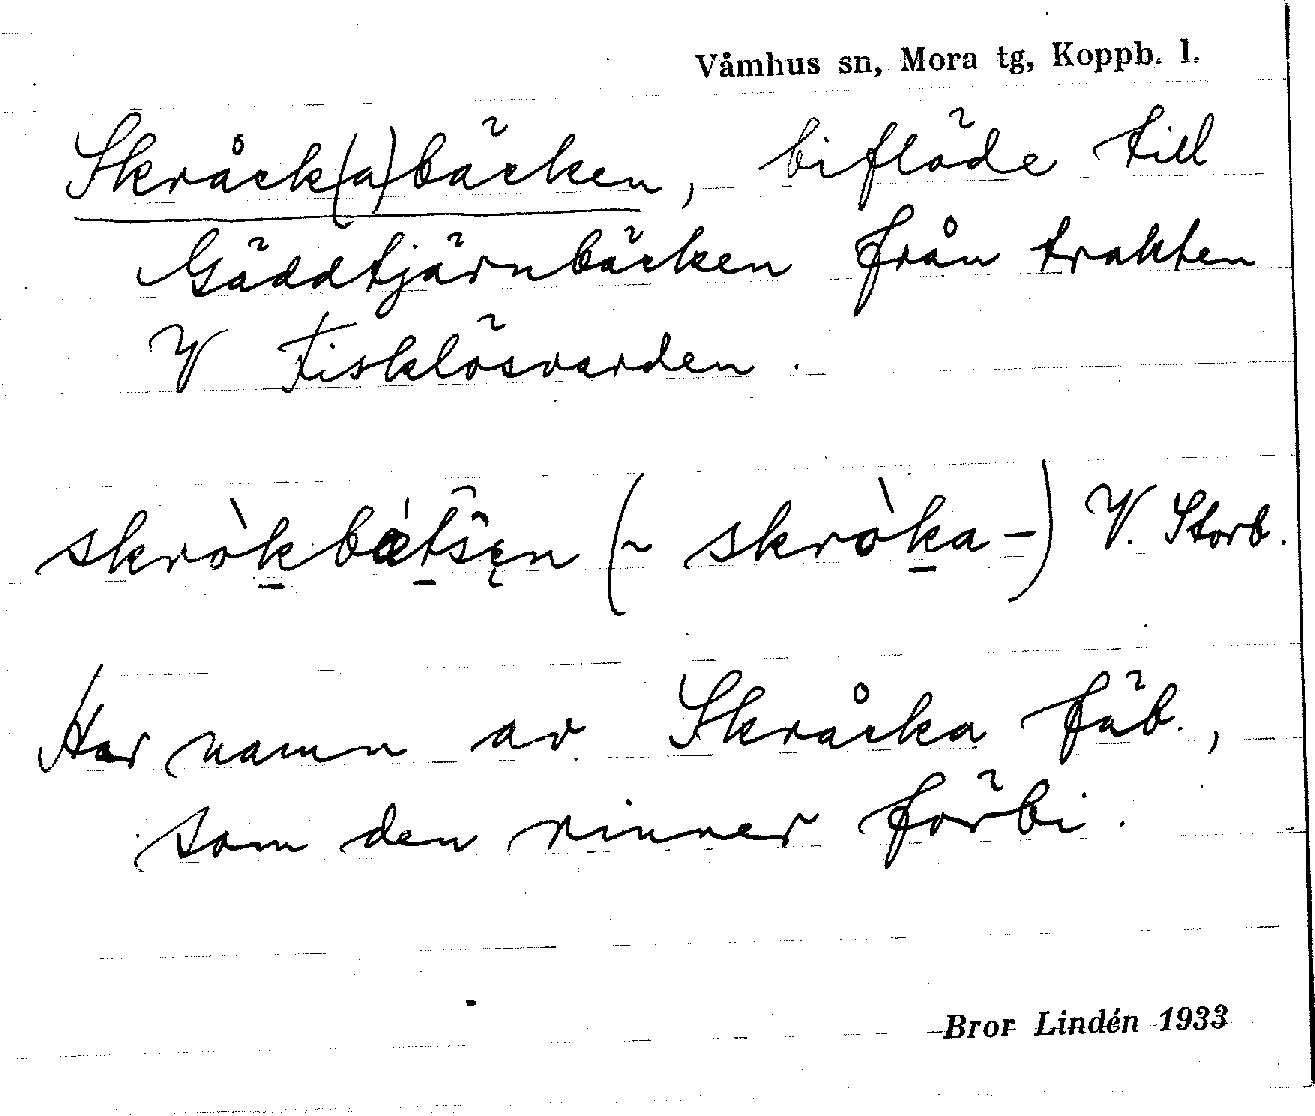 Våmhus sn, Mora tg, Koppb. l.
Skråck(a)bäcken, biflöde till
Gäddtjärnbäcken från trakten
V Fisklösvarden.
skròk̲bǽt̲šę̂n (~ skròk̲a-) V. Storb.
Har namn av Skråcka fäb.,
som den rinner förbi.
Bror Lindén 1933